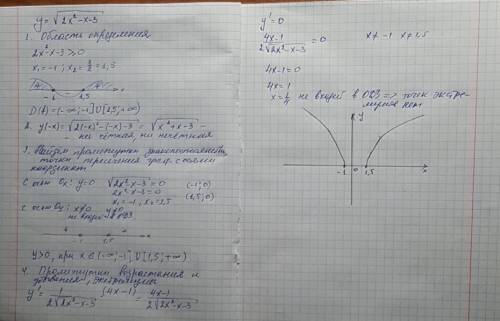 y = √2x² - x - 3
1. Область определения
2x² - x - 3 ≥ 0
x₁ = -1 ; x₂ = 3/2 = 1,5
+ - + x
-1 1,5
D(f) = (-∞; -1] U [1,5; +∞)
2. y(-x) = √2(-x)² - (-x) - 3 = √x² + x - 3 -
- не чётная, ни нечётная
3. Найдем промежутки знакопостоянства,
точки пересечения граф. с осями
координат
С осью Ox: y = 0 √2x² - x - 3 = 0 (-1; 0)
2x² - x - 3 = 0 (1,5; 0)
x₁ = -1, x₂ = 1,5
С осью Oy: x ≠ 0
не входит в ОДЗ
+ +
-1 1,5 x
y > 0, при x ∈ (-∞; -1] U [1,5; +∞)
4. Промежутки возрастания и
убывания, экстремумы
y' = 1/2√2x² - x - 3 · (4x - 1) = 4x - 1/2√2x² - x - 3
y' = 0
4x - 1/2√2x² - x - 3 = 0 x ≠ -1 x ≠ 1,5
4x - 1 = 0
4x = 1
x = 1/4 не входит в ОДЗ => точек экстре-
мума нет
y
-1 0 1,5 x